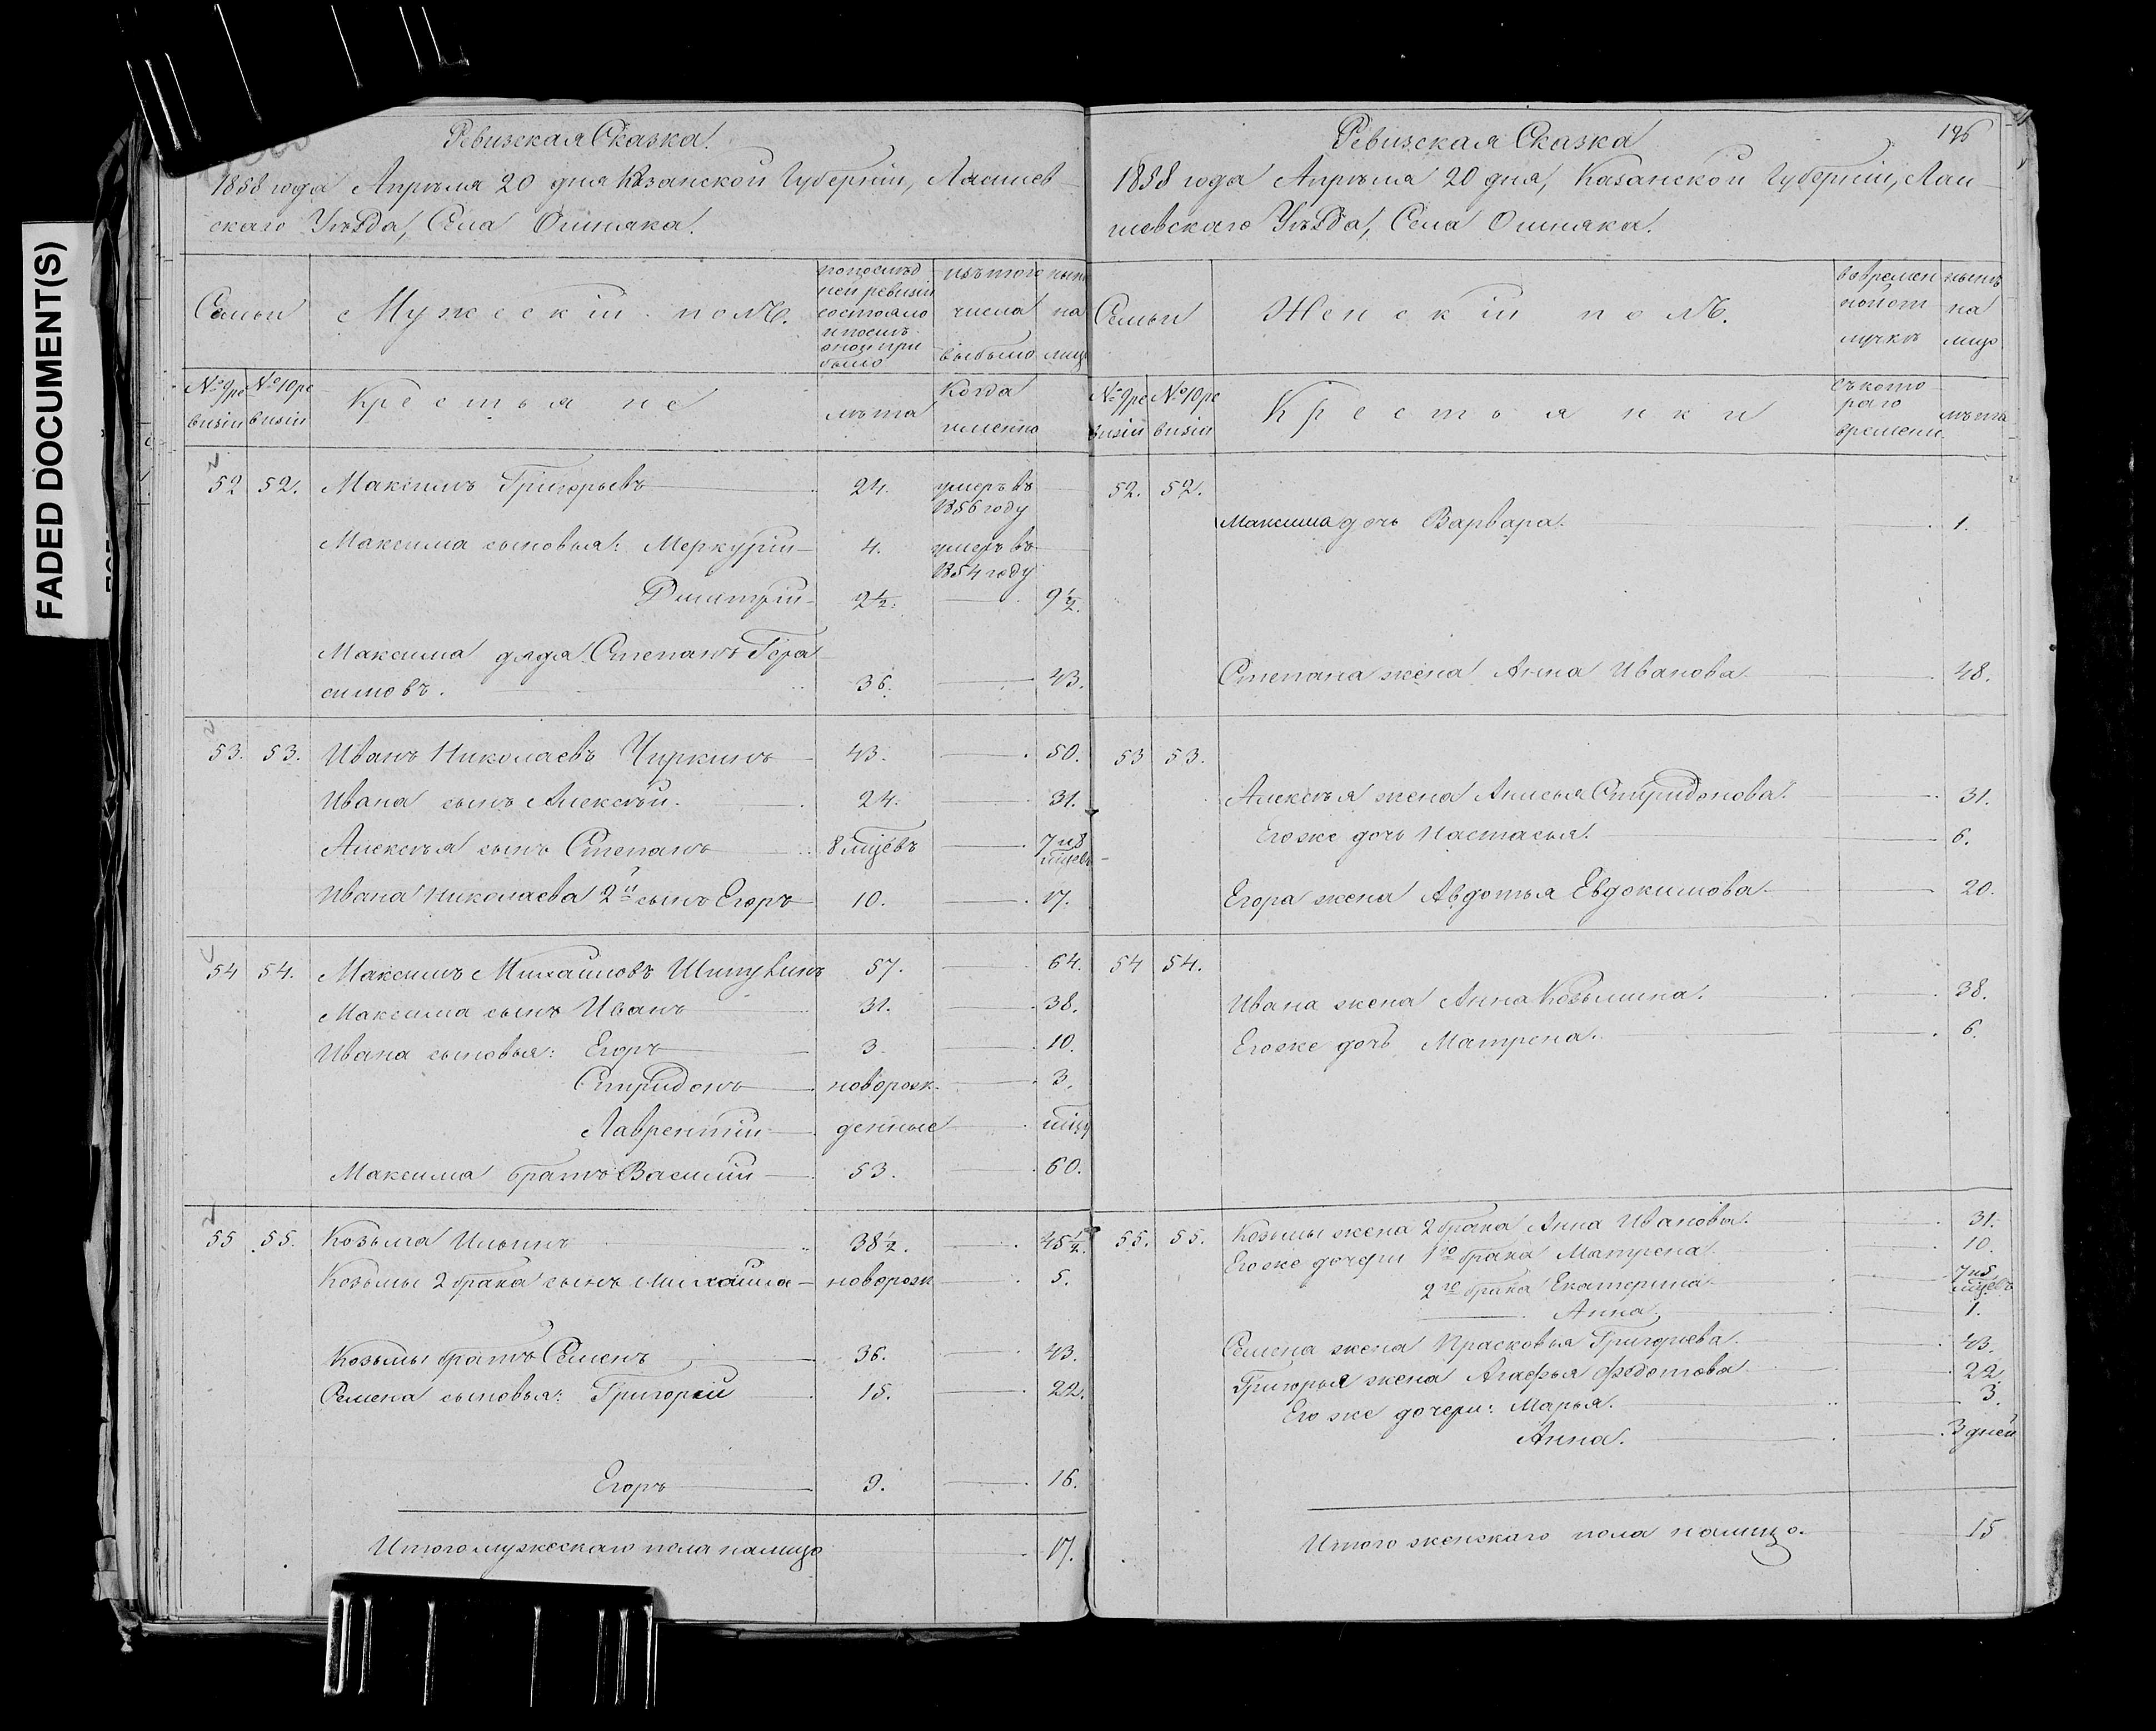 FADED DOCUMENT(S)
Ревизская Сказка.
1858 года Апрѣля 20 дня Казанской Губерніи, Лаишев
скаго Уѣзда, Села Ошняка.
Семьи
Мужескій полъ.
по послѣд
ней ревизіи
состояло
и послѣ
оной при
было
изъ того
числа
выбыло
нынѣ
на
лицо
№ 9 ре
визіи
№ 10 ре
визіи
Крестьяне
лѣта
Когда
именно
52 52. Максимъ Григорьевъ 24. умеръ въ
1856 году
Максима сыновья: Меркурій 4. умеръ въ
1854 году
Димитрій 2½. 9½.
Максима дядя Степанъ Гера
симовъ. 36. 43.
53. 53. Иванъ Николаевъ Чиркинъ 43. 50.
Ивана сынъ Алексѣй. 24. 31.
Алексѣя сынъ Степанъ 8 мцевъ 7 и 8
мцевъ
Ивана Николаева 2й сынъ Егоръ 10. 17.
54 54. Максимъ Михайловъ 57. 64.
Максима сынъ Иванъ 31. 38.
Ивана сыновья: Егоръ 3. 10.
Спиридонъ новорож. 3.
Лаврентій денные
Максима братъ Василій 53. 60.
55 55. Козьма Ильинъ 38½. 45½.
Козьмы 2 брака сынъ Михайла новорож 5.
Козьмы братъ Семенъ 36. 43.
Семена сыновья: Григорей 15. 22.
Егоръ 9. 16.
Итого мужескаго пола налицо 17.
196
Ревизская Сказка
1858 года Апрѣля 20 дня, Казанской Губерніи, Лаи
шевскаго Уѣзда, Села Ошняка.
Семьи
Женскій полъ.
во времен
ной от
лучкѣ
нынѣ
на
лицо
№ 9 ре
визіи
№ 10 ре
визіи
Крестьянки
съ кото
раго
времени
лѣта
52. 52.
Максима дочь Варвара. 1.
Степана жена Анна Иванова 48.
53 53.
Алексѣя жена Анисья Спиридонова. 31.
Его же дочь Настасья. 6.
Егора жена Авдотья Евдокимова 20.
54 54.
Ивана жена Анна Козьмина. 38.
Его же дочь Матрена. 6.
55. 55. Козьмы жена 2 брака Анна Иванова. 31.
Его же дочери 1го брака Матрена 10.
2го брака Екатерина 7 и 5
мцевъ
Анна 1.
Семена жена Прасковья Григорьева. 43.
Григорья жена Агафья Федотова 22.
Его же дочери: Марья. 3.
Анна. 3 дней
Итого женскаго пола налицо. 15